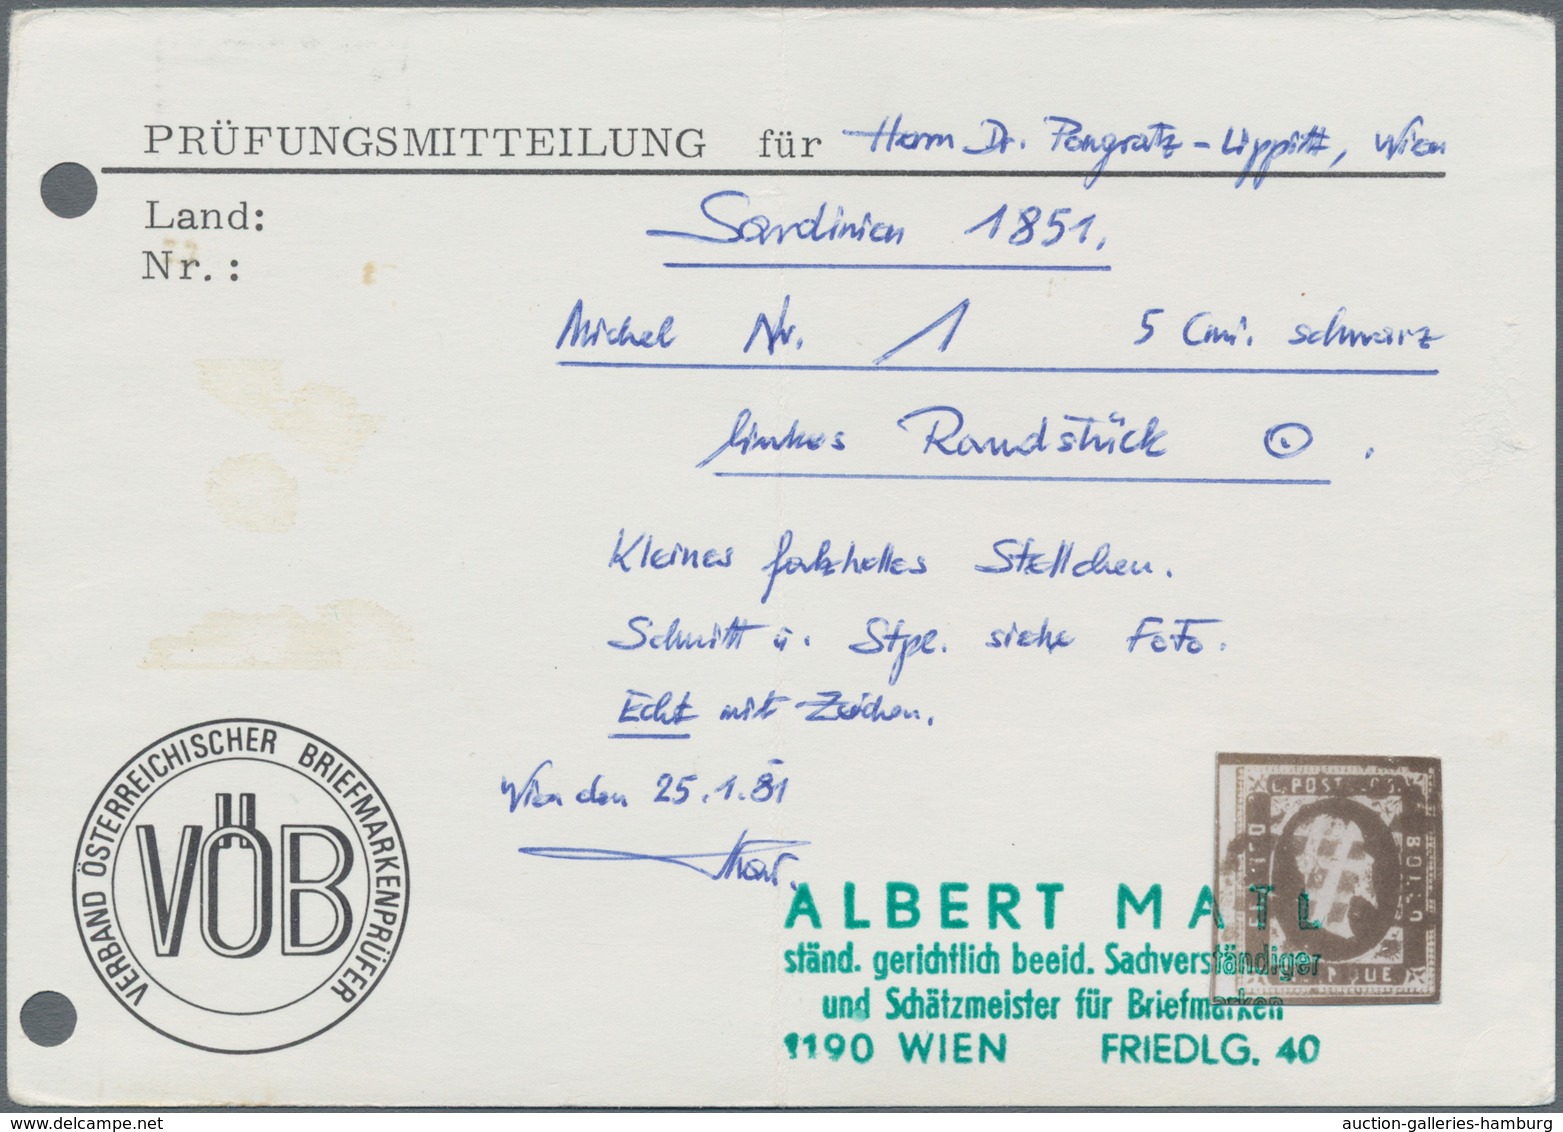 PRÜFUNGSMITTEILUNG für Herrn Dr. Pongratz-Lippitt, Wien
Land: Sardinien 1851.
Nr.:
Michel Nr. 1 5 Cmi. schwarz
linkes Randstück ⊙.
Kleines falzhelles Stellchen.
Schnitt u. Stpl. siehe Foto.
Echt mit Zeichen.
Wien den 25.1.81
VERBAND ÖSTERREICHISCHER BRIEFMARKENPRÜFER
VÖB
C. POSTE
BOLLO
ALBERT MATL
ständ. gerichtlich beeid. Sachverständiger
und Schätzmeister für Briefmarken
1190 WIEN FRIEDLG. 40
delcampe.net
auction-galleries-hamburg